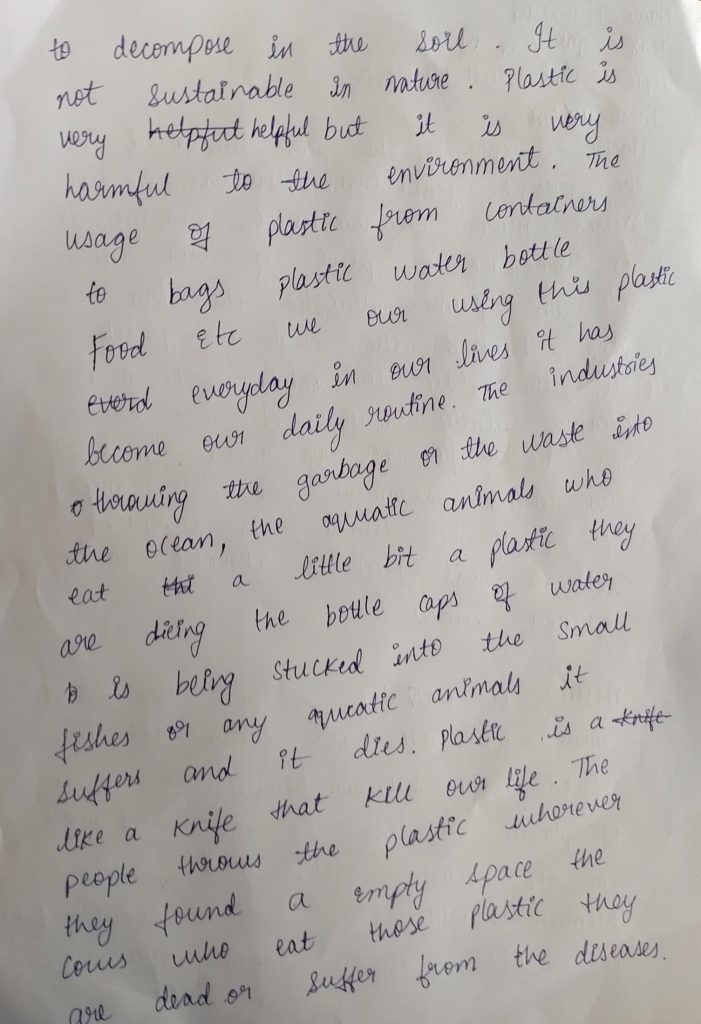 to decompose in the soil. It is
not sustainable in nature. Plastic is
very helpful helpful but it is very
harmful to the environment. The
usage of plastic from containers
to bags plastic water bottle
Food Etc we our using this plastic
everd everyday in our lives it has
become our daily routine. The industries
throwing the garbage or the waste into
the ocean, the aquatic animals who
eat thi a little bit a plastic they
are dieing the bottle caps of water
b is being stucked into the small
fishes or any aqucatic animals it
suffers and it dies. Plastic is a knife
like a knife that kill our life. The
people throws the plastic wherever
they found a empty space the
cows who eat those plastic they
are dead or suffer from the diseases.